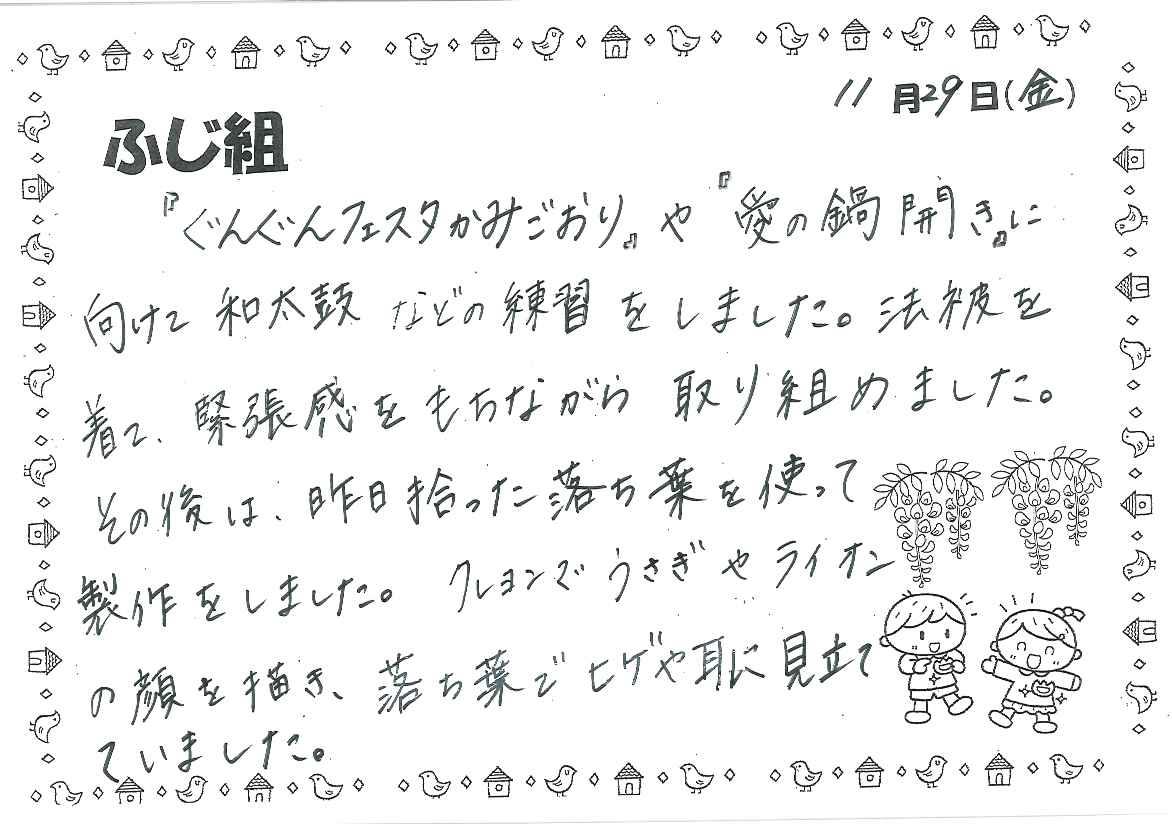 11月29日(金)
ふじ組
『ぐんぐんフェスタかみごおり』や『愛の鍋開き』に
向けて和太鼓などの練習をしました。法被を
着て、緊張感をもちながら取り組めました。
その後は、昨日拾った落ち葉を使って
製作をしました。クレヨンでうさぎやライオン
の顔を描き、落ち葉でヒゲや耳に見立て
ていました。